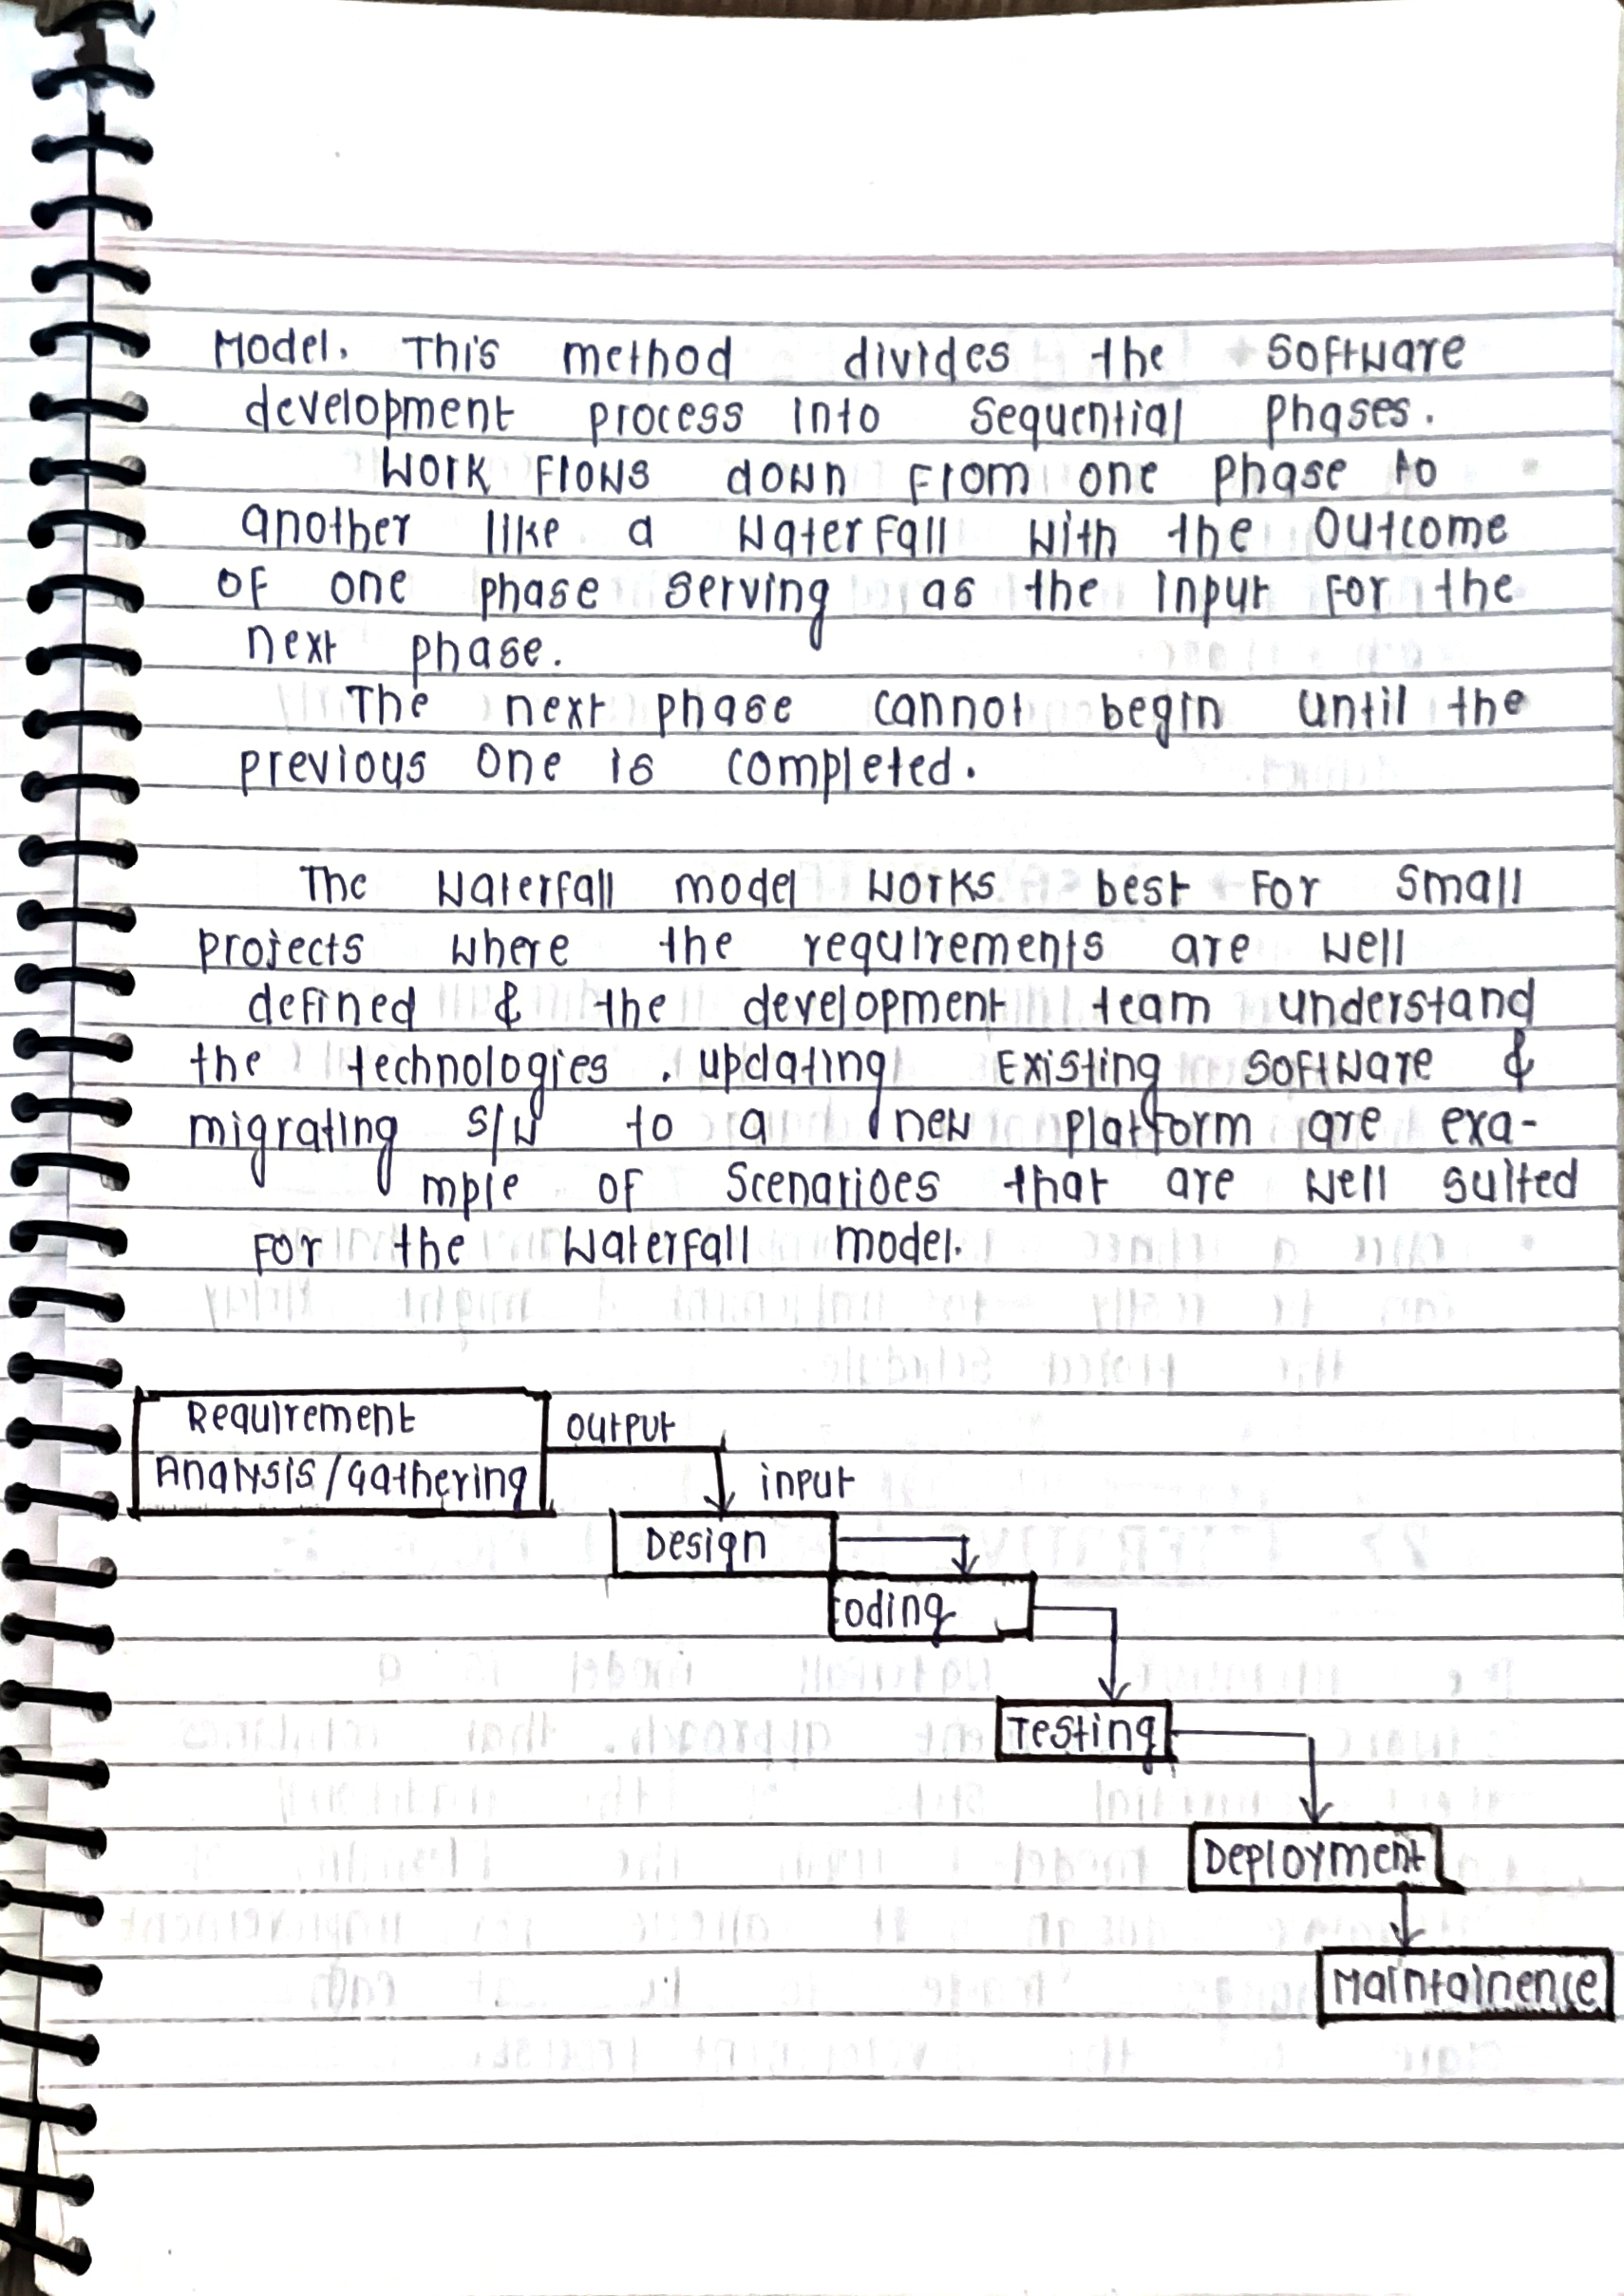 Model. This method divides the software
development process into sequential phases.
Work flows down from one phase to
another like a waterfall with the outcome
of one phase serving as the input for the
next phase.
The next phase cannot begin until the
previous one is completed.
The waterfall model works best for small
projects where the requirements are well
defined & the development team understand
the technologies. updating existing software &
migrating s/w to a new platform are exa-
mple of scenarioes that are well suited
for the waterfall model.
Requirement
Analysis/Gathering
output
input
Design
coding
Testing
Deployment
Maintainence